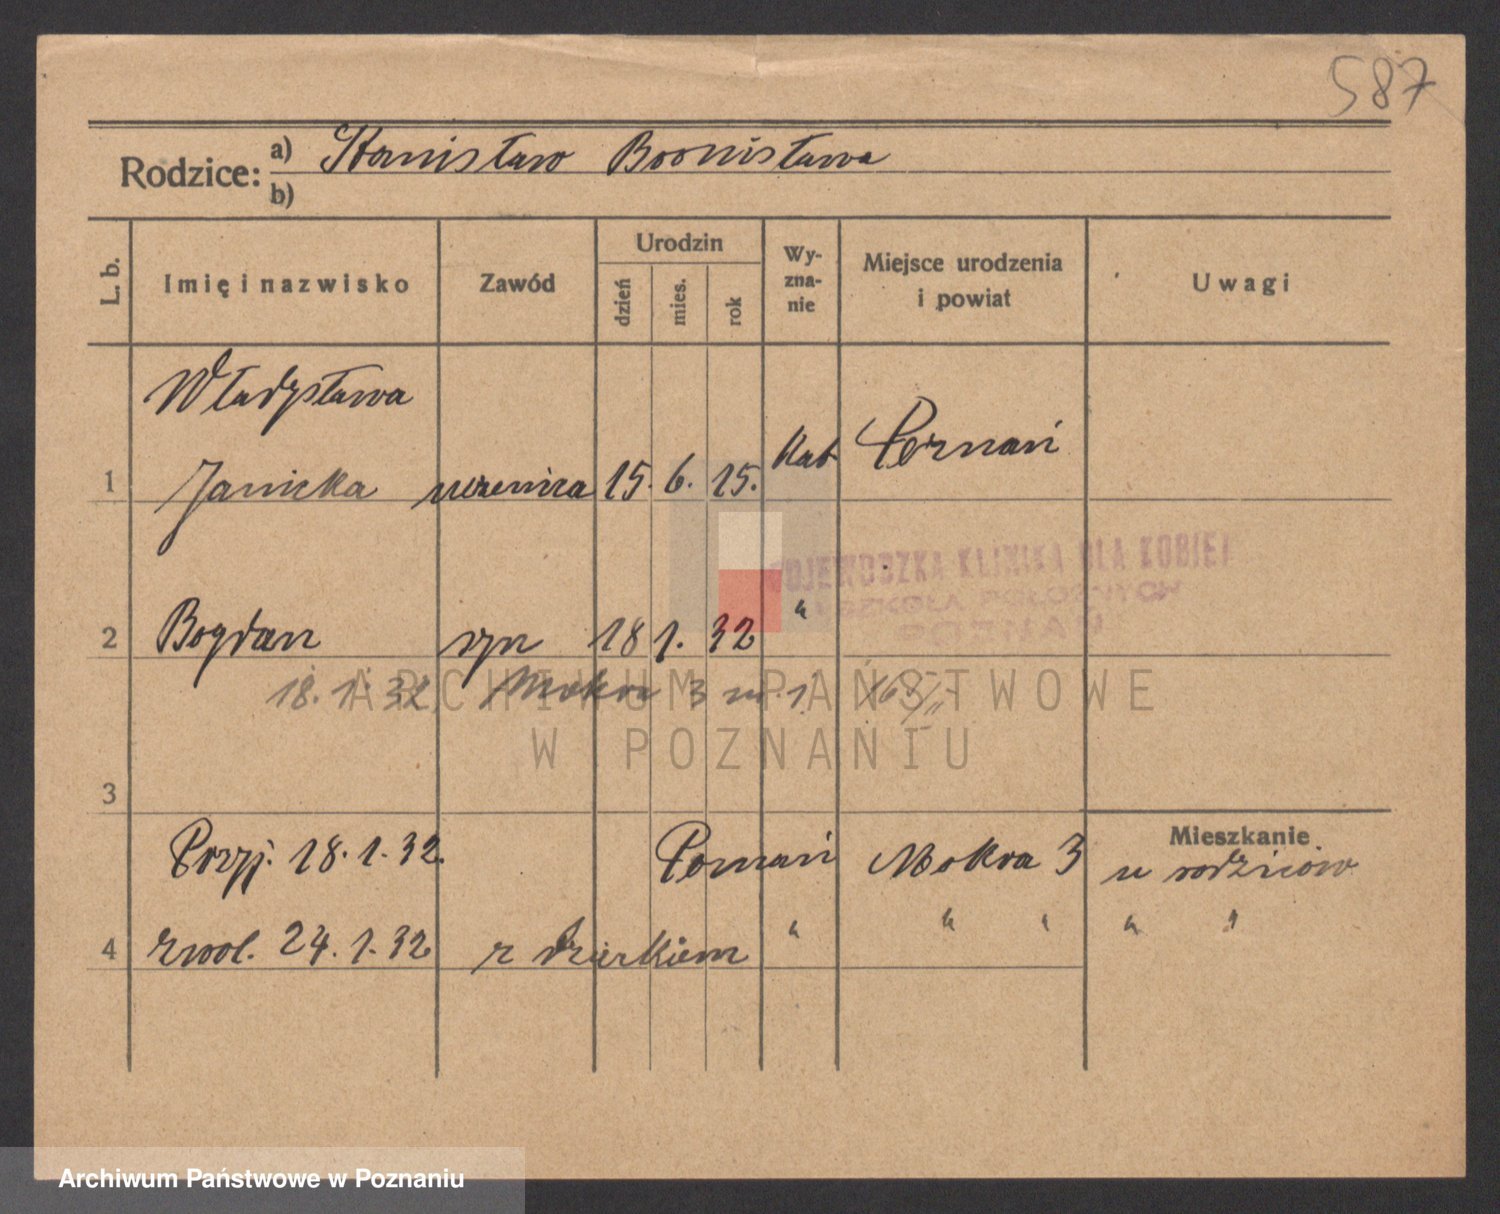 587
Rodzice: a) Stanisław Bronisława
b)
L. b.
Imię i nazwisko
Zawód
Urodzin
dzień
mies.
rok
Wy-
zna-
nie
Miejsce urodzenia
i powiat
Uwagi
Władysława
1 Janicka uczenica 15. 6. 15. Kat Poznań
WOJEWÓDZKA KLINIKA DLA KOBIET
I SZKOŁA POŁOŻNYCH
POZNAŃ
2 Bogdan syn 18 1. 32 "
18. 1. 32 Mokra 3 m. 1
ARCHIWUM PAŃSTWOWE
W POZNANIU
3
Mieszkanie
Przyj. 18. 1. 32. Poznań Mokra 3 u rodziców
4 zwol. 24. 1. 32 z dzieckiem " " " " "
Archiwum Państwowe w Poznaniu